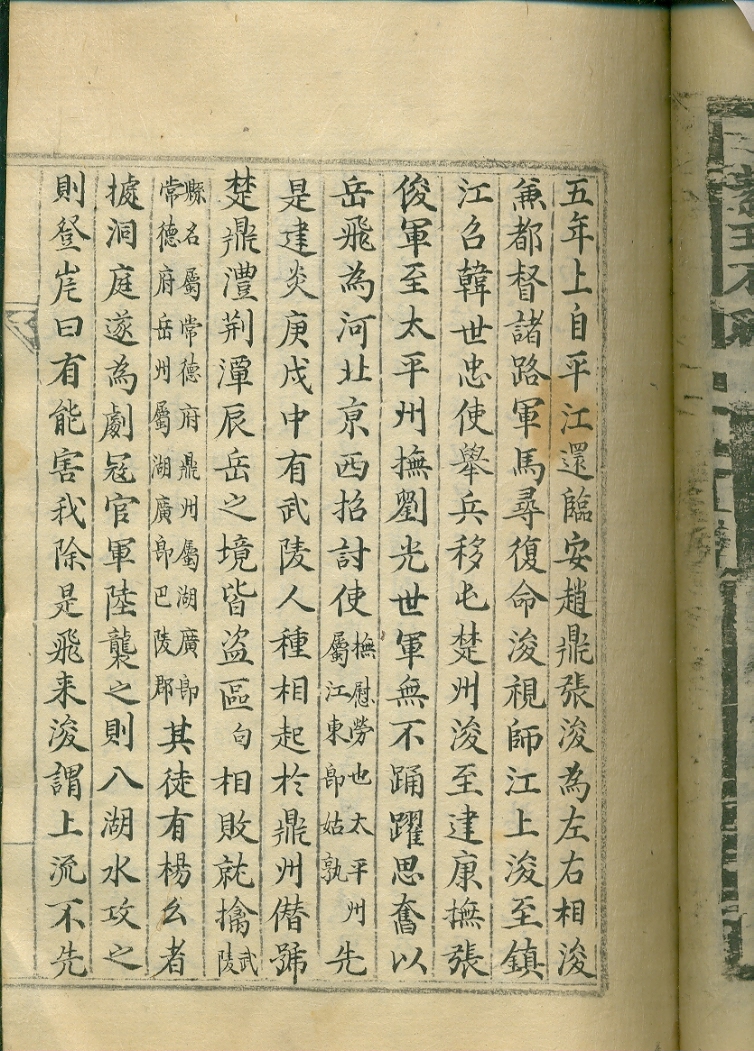 五年上自平江還臨安趙鼎張浚為左右相浚
兼都督諸路軍馬尋復命浚視師江上浚至鎮
江召韓世忠使舉兵移屯楚州浚至建康撫張
俊軍至太平州撫劉光世軍無不踊躍思奮以
岳飛為河北京西招討使撫慰勞也太平州屬江東即姑孰先
是建炎庚戌中有武陵人種相起於鼎州僣號
楚鼎澧荆潭辰岳之境皆盜區句相敗就擒武陵
縣名屬常德府鼎州屬湖廣即常德府岳州屬湖廣即巴陵郡其徒有楊幺者
據洞庭遂為劇冦官軍陸襲之則入湖水攻之
則登岸曰有能害我除是飛来浚謂上流不先